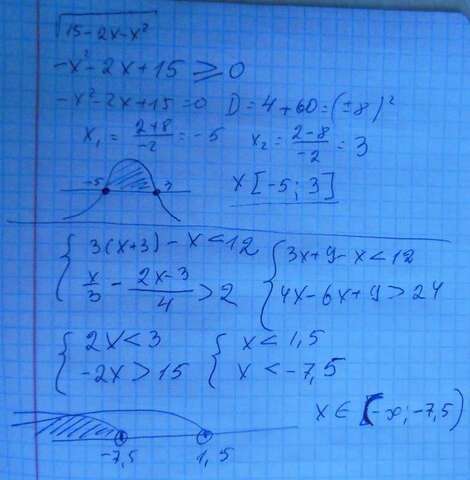 √15-2x-x²
-x²-2x+15 ≥ 0
-x²-2x+15=0 D=4+60=(±8)²
x₁ = 2+8/-2 = -5 x₂ = 2-8/-2 = 3
-5 3
x [-5; 3]
{ 3(x+3)-x<12 { 3x+9-x<12
x/3 - 2x-3/4 >2 4x-6x+9>24
{ 2x<3 { x<1,5
-2x>15 x<-7,5
x∈(-∞; -7,5)
-7,5 1,5